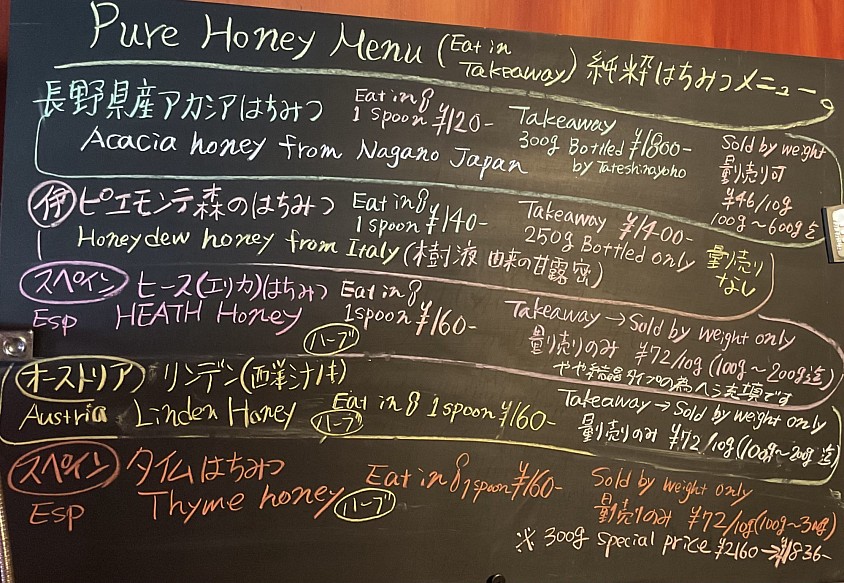 Pure Honey Menu (Eat in Takeaway) 純粋はちみつメニュー
長野県産アカシアはちみつ
Acacia honey from Nagano Japan
Eat in
1 spoon ¥120-
Takeaway
300g Bottled ¥1800-
by Tateshinayoho
Sold by weight
量り売り可
¥46/10g
100g~600g迄
伊 ピエモンテ森のはちみつ
Honeydew honey from Italy (樹液由来の甘露密)
Eat in
1 spoon ¥140-
Takeaway ¥1400-
250g Bottled only
量り売り
なし
スペイン ヒース(エリカ)はちみつ
Esp HEATH Honey
ハーブ
Eat in
1 spoon ¥160-
Takeaway → Sold by weight only
量り売りのみ ¥72/10g (100g~200g迄)
やや結晶タイプの為ヘラ充填です
オーストリア リンデン(西洋菩提樹)
Austria Linden Honey
ハーブ
Eat in 1 spoon ¥160-
Takeaway → Sold by weight only
量り売りのみ ¥72/10g (100g~200g迄)
スペイン タイムはちみつ
Esp Thyme honey
ハーブ
Eat in 1 spoon ¥160-
Sold by weight only
量り売りのみ ¥72/10g (100g~300g)
※ 300g special price ¥2160→¥1836-